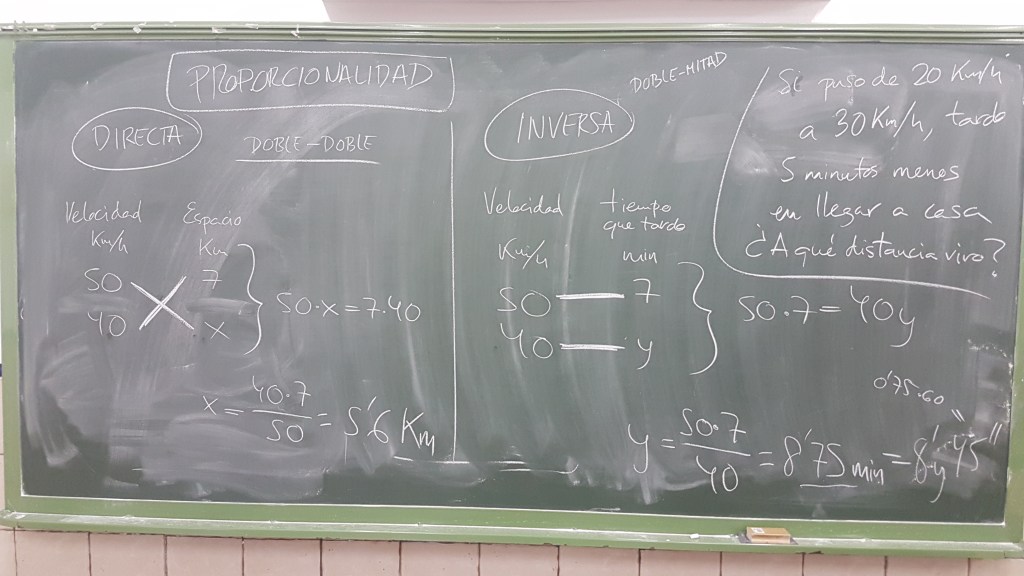 PROPORCIONALIDAD
DIRECTA
DOBLE-DOBLE
Velocidad Espacio
Km/h Km
50 7
40 x
50·x=7·40
x = 40·7 / 50 = 5'6 Km
INVERSA
DOBLE-MITAD
Velocidad tiempo
que tardo
Km/h min
50 7
40 y
50·7=40y
0'75·60
y = 50·7 / 40 = 8'75 min = 8' y 45"
Si paso de 20 Km/h
a 30 Km/h, tardo
5 minutos menos
en llegar a casa
¿A qué distancia vivo?